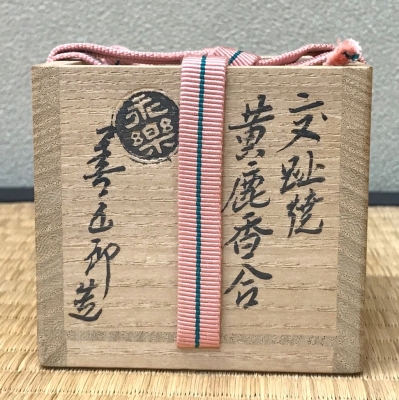 交趾焼
黄鹿香合
永樂
善五郎造